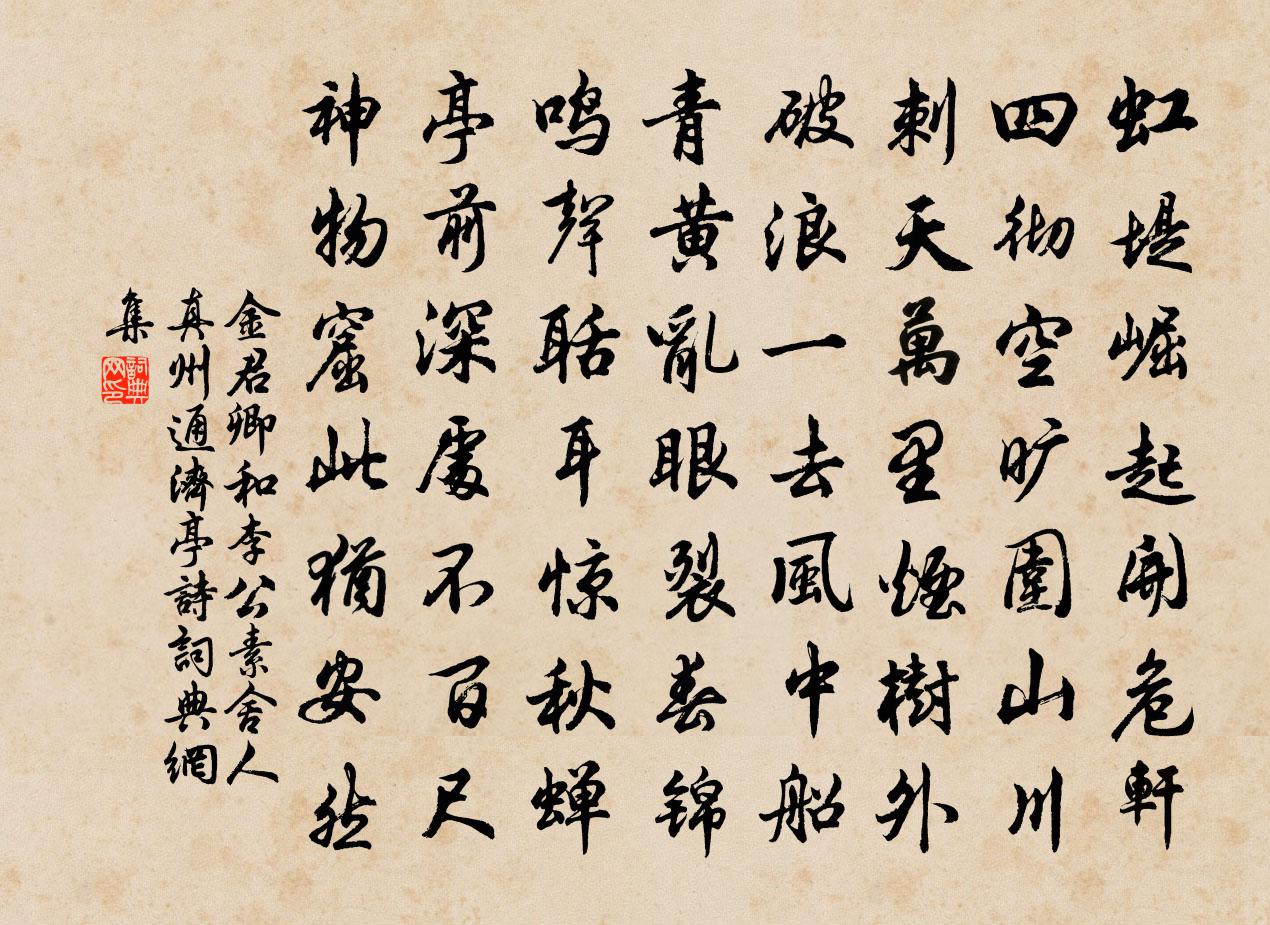 虹堤崛起開危軒
四彻空旷圍山川
刺天萬里煙樹外
破浪一去風中船
青黄亂眼裂春锦
鸣聲聒耳惊秋蝉
亭前深處不百尺
神物窟此猶安然
金君卿和李公素舍人
真州通濟亭詩詞典網
集
詞典网印